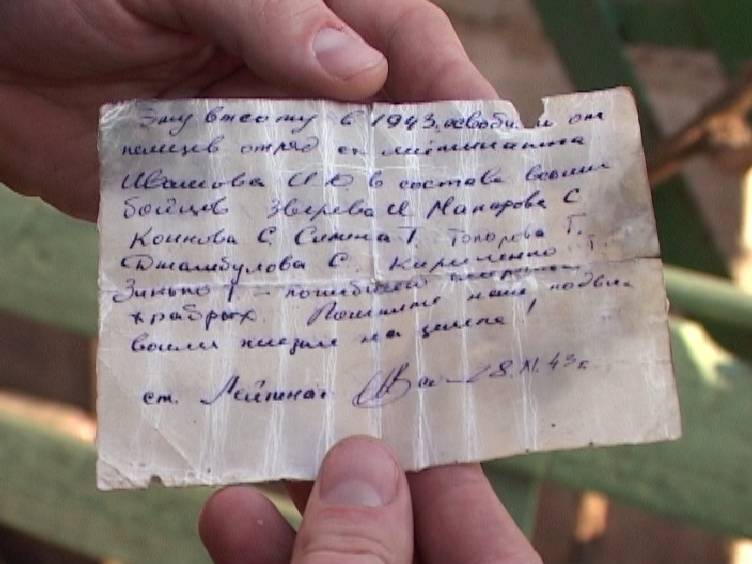 Эту высоту в 1943. освободил от
немцев отряд ст. лейтинанта
Ивашова И.Ю в составе восьми
бойцов Зверева И Макарова С
Коннова С. Сизина Т. Топорова Г.
Джамбулова С. Кириленко Т.
Зинько Г. – погибшего
храбрых. Помните наш подвиг
воины жизни на земле!
ст. Лейтнат 8.XI.43 г.